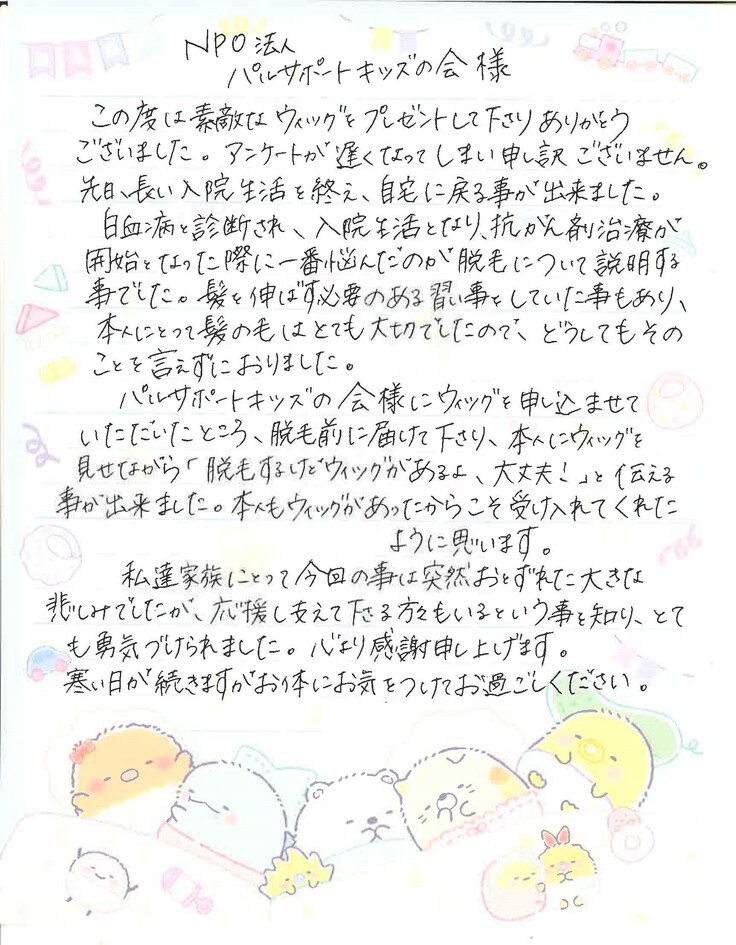 NPO法人
パルサポートキッズの会 様
この度は素敵なウィッグをプレゼントして下さりありがとう
ございました。アンケートが遅くなってしまい申し訳ございません。
先日、長い入院生活を終え、自宅に戻る事が出来ました。
白血病と診断され、入院生活となり、抗がん剤治療が
開始となった際に一番悩んだのが脱毛について説明する
事でした。髪を伸ばす必要のある習い事をしていた事もあり、
本人にとって髪の毛はとても大切でしたので、どうしてもその
ことを言えずにおりました。
パルサポートキッズの会様にウィッグを申し込ませて
いただいたところ、脱毛前に届けて下さり、本人にウィッグを
見せながら「脱毛するけどウィッグがあるよ、大丈夫!」と伝える
事が出来ました。本人もウィッグがあったからこそ受け入れてくれた
ように思います。
私達家族にとって今回の事は突然おとずれた大きな
悲しみでしたが、応援し支えて下さる方々もいるという事を知り、とて
も勇気づけられました。心より感謝申し上げます。
寒い日が続きますがお体にお気をつけてお過ごしください。